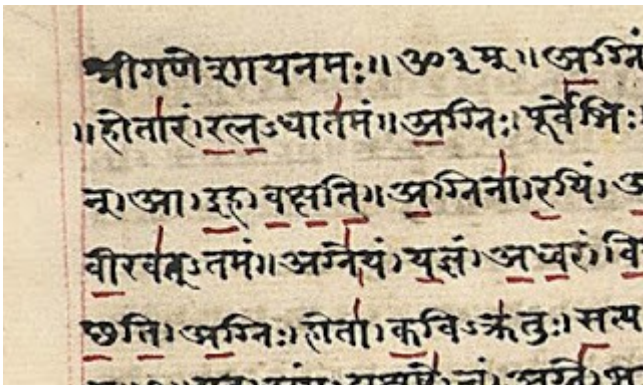 श्रीगणेशायनमः॥ॐ३म्॥अग्निं
॥होतारं।रत्नऽधातमं॥अग्निः।पूर्वेभिः
न्।आ।इह।वक्षति॥अग्निना।रयिं।
वीरवत्ऽतमं॥अग्ने।यं।यज्ञं।अध्वरं।वि
छति।अग्निः।होता।कविऽक्रतुः।सत्य